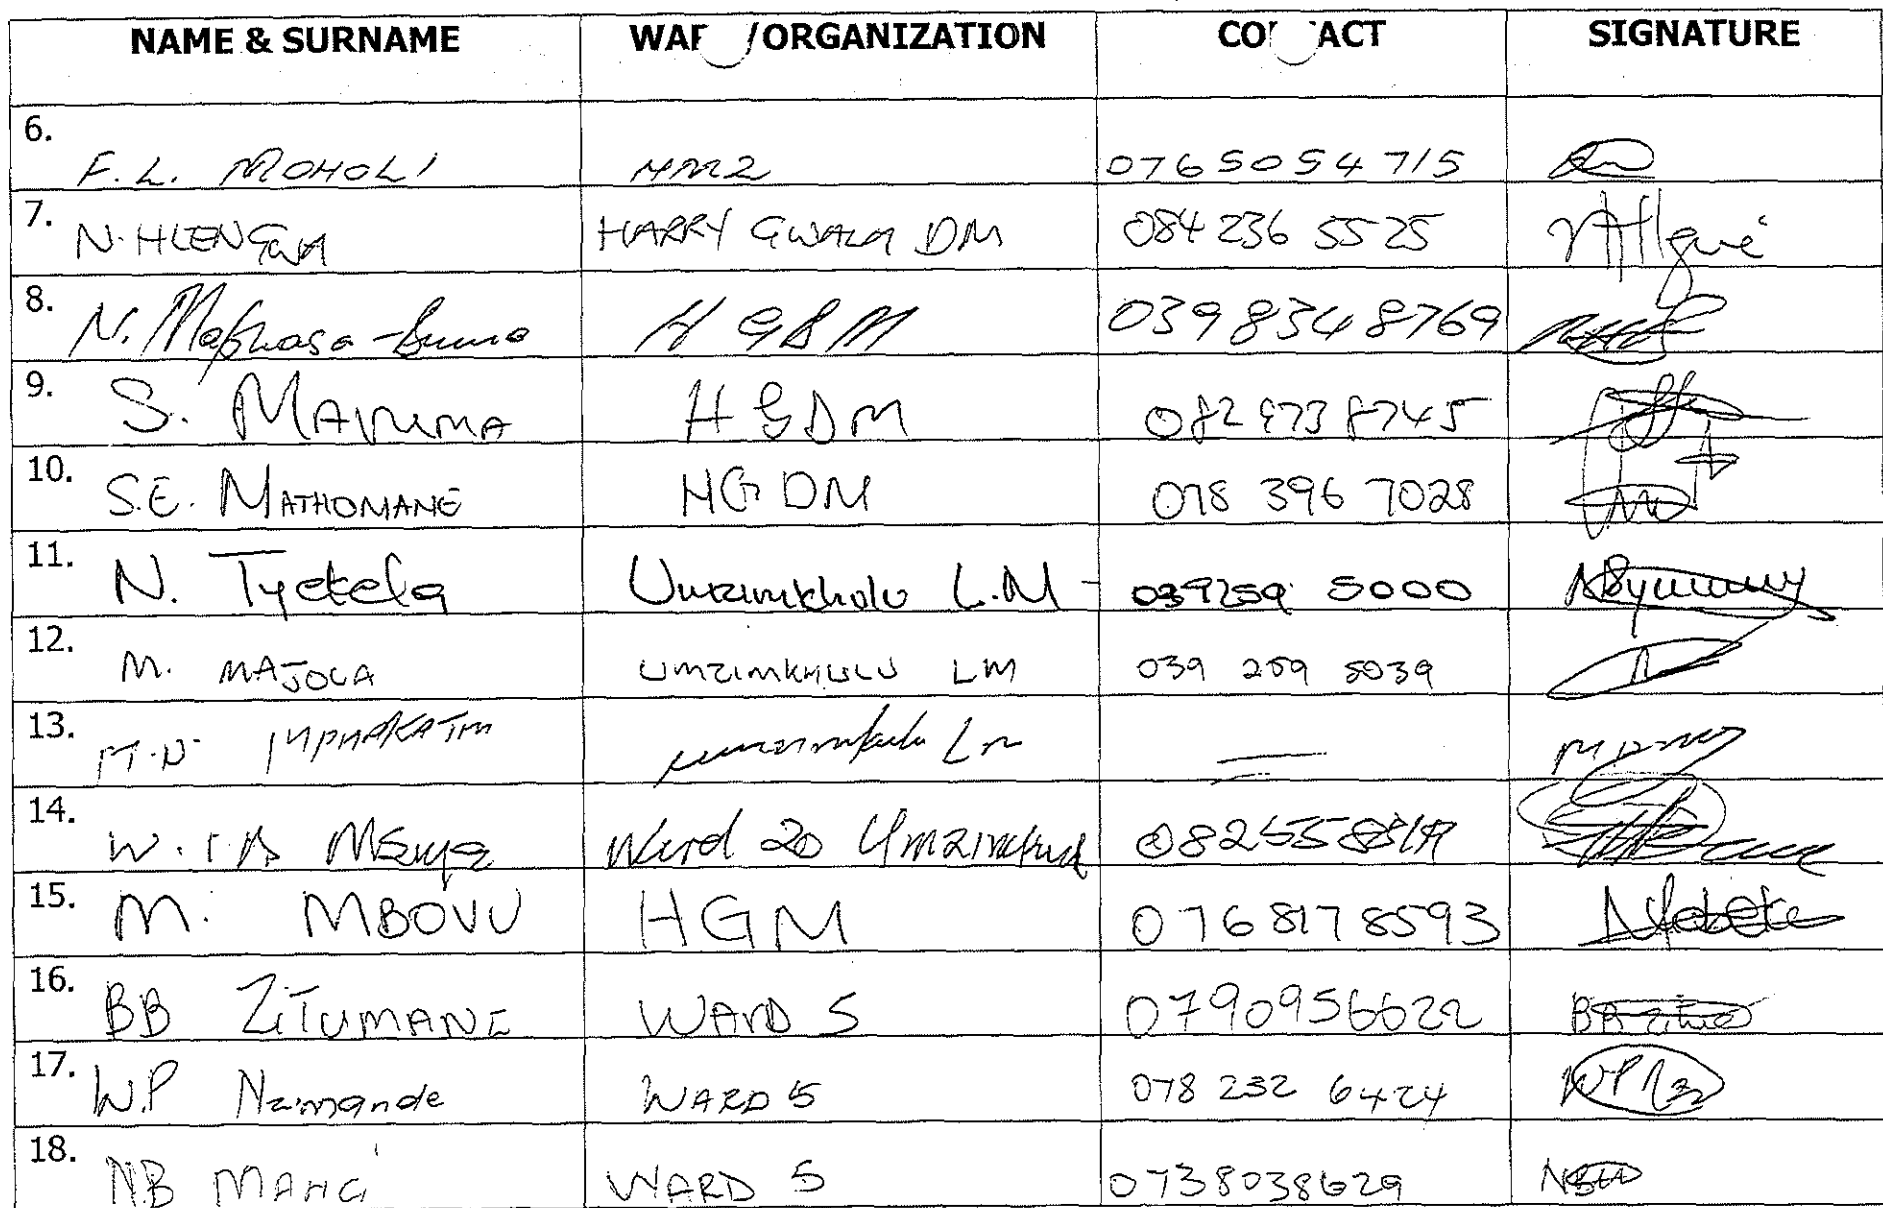 NAME & SURNAME WAR /ORGANIZATION CONTACT SIGNATURE
6. F.L. MOHOLI 0765054715
7. N. HLENGWA HARRY GWALA DM 084 236 5525
8. N. Maphasa- 039 834 8769
9. S. MAVUMA HGDM 082 973 8745
10. S.E. MATHOMANE HGDM 078 396 7028
11. N. Tyetela Umzimkhulu L.M 039259 5000
12. M. MAJOLA UMZIMKHULU LM 039 259 5039
13. M.D MPHAKATHI umzimkulu Lm
14. W. Msiya Ward 20 Umzimkhulu
15. M. MBOVU HGM 0768178593
16. BB ZITUMANE WARD 5 0790956622
17. W.P Nzimande WARD 5 078 232 6424
18. NB WARD 5 0738038629